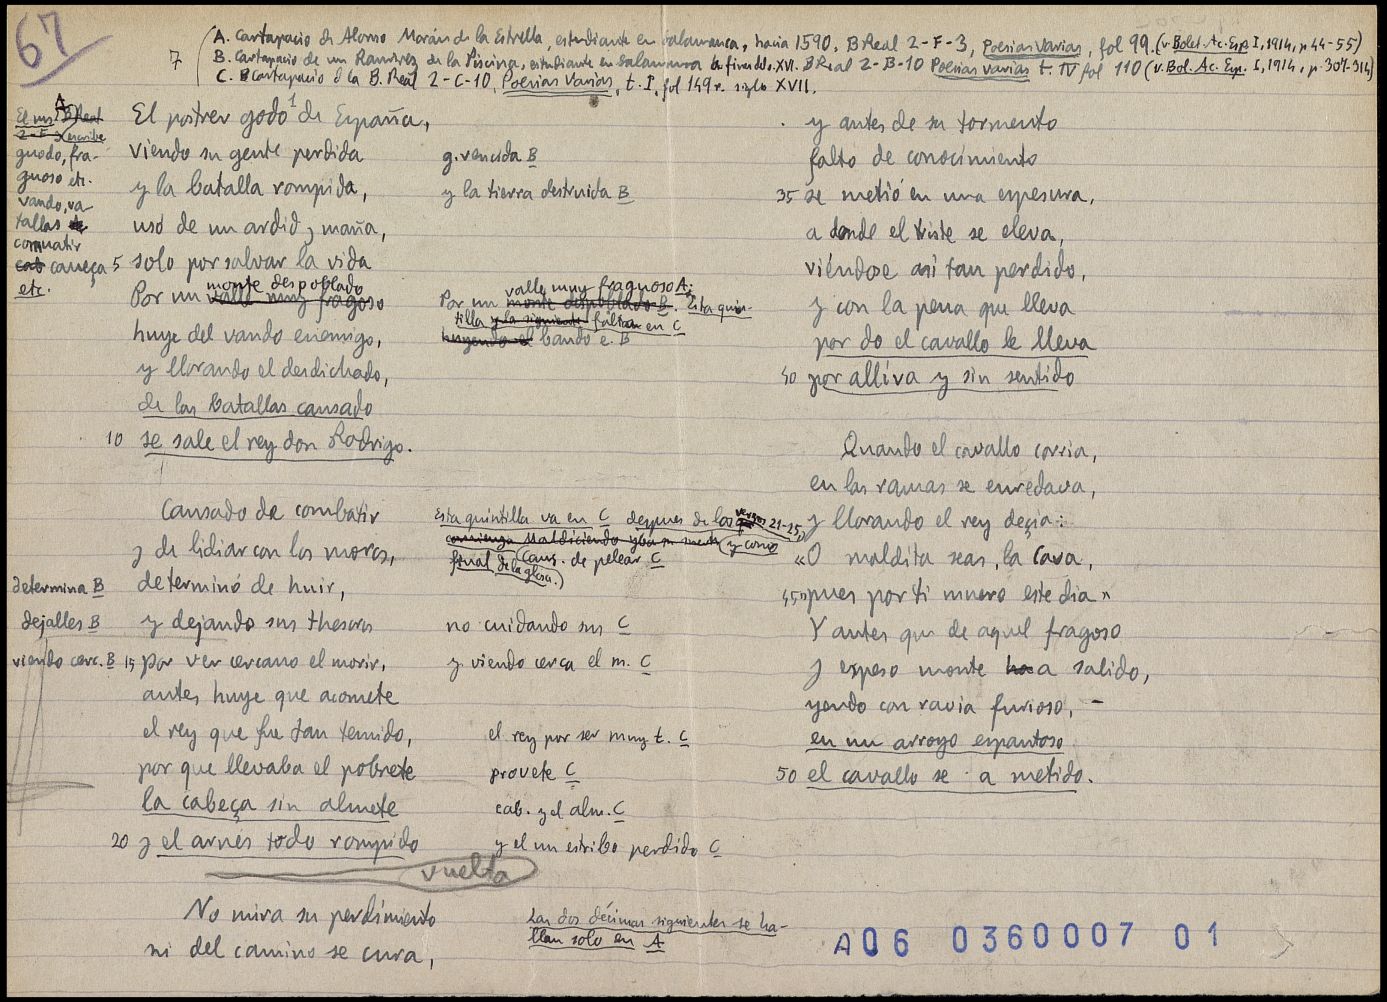 67
7
A. Cartapacio de Alonso Morán de la Estrella, estudiante en Salamanca, hacia 1590. B Real 2-F-3, Poesias Varias, fol 99. (v. Bolet. Ac. Esp. I, 1914, p. 44-55)
B. Cartapacio de un Ramirez de la Piscina, estudiante en Salamanca a fines del s. XVI. B Real 2-B-10 Poesias varias t. IV fol 110 (v. Bol. Ac. Esp. I, 1914, p. 307-314)
C. Cartapacio d la B. Real 2-C-10, Poesias Varias, t. I, fol 149 r. siglo XVII.
A
El ms B Real
2-F-3 escribe
guodo, fra-
guoso etc.
vando, va-
tallas
comuatir
cab caveça
etc.
El postrer godo 1 de España,
viendo su gente perdida
g. vencida B
y la batalla rompida,
y la tierra destruida B
usó de un ardid y maña,
5 solo por salvar la vida
monte despoblado
Por un valle muy fragoso
valle muy fraguoso A;
Por un monte despoblado B. Esta quin-
tilla y la siguiente faltan en C
huye del vando enemigo,
huyendo el bando e. B
y llorando el desdichado,
de las batallas cansado
10 se sale el rey don Rodrigo.
Cansado de combatir
y de lidiar con los moros,
Esta quintilla va en C despues de los versos 21-25,
comienza Maldiciendo y como
final de la glosa.) Cans. de pelear C
determinó de huir,
determina B
y dejando sus thesoros
dejalles B
no cuidando sus C
15 por ver cercano el morir,
viendo cerc. B
y viendo cerca el m. C
antes huye que acomete
el rey que fue tan temido,
el rey por ser muy t. C
por que llevaba el pobrete
provete C
la cabeça sin almete
cab. y el alm. C
20 y el arnés todo rompido
y el un estribo perdido C
vuelta
No mira su perdimiento
ni del camino se cura,
Las dos décimas siguientes se ha-
llan solo en A
y antes de su tormento
falto de conocimiento
35 se metió en una espesura,
a donde el triste se eleva,
viéndose así tan perdido,
y con la pena que lleva
por do el cavallo le lleva
40 por allí va y sin sentido
Quando el cavallo corria,
en las ramas se enredava,
y llorando el rey deçia:
«O maldita seas, la Cava,
45 » pues por ti muero este dia»
Y antes que de aquel fragoso
y espeso monte ha a salido,
yendo con ravia furioso,
en un arroyo espantoso
50 el cavallo se a metido.
A06 0360007 01